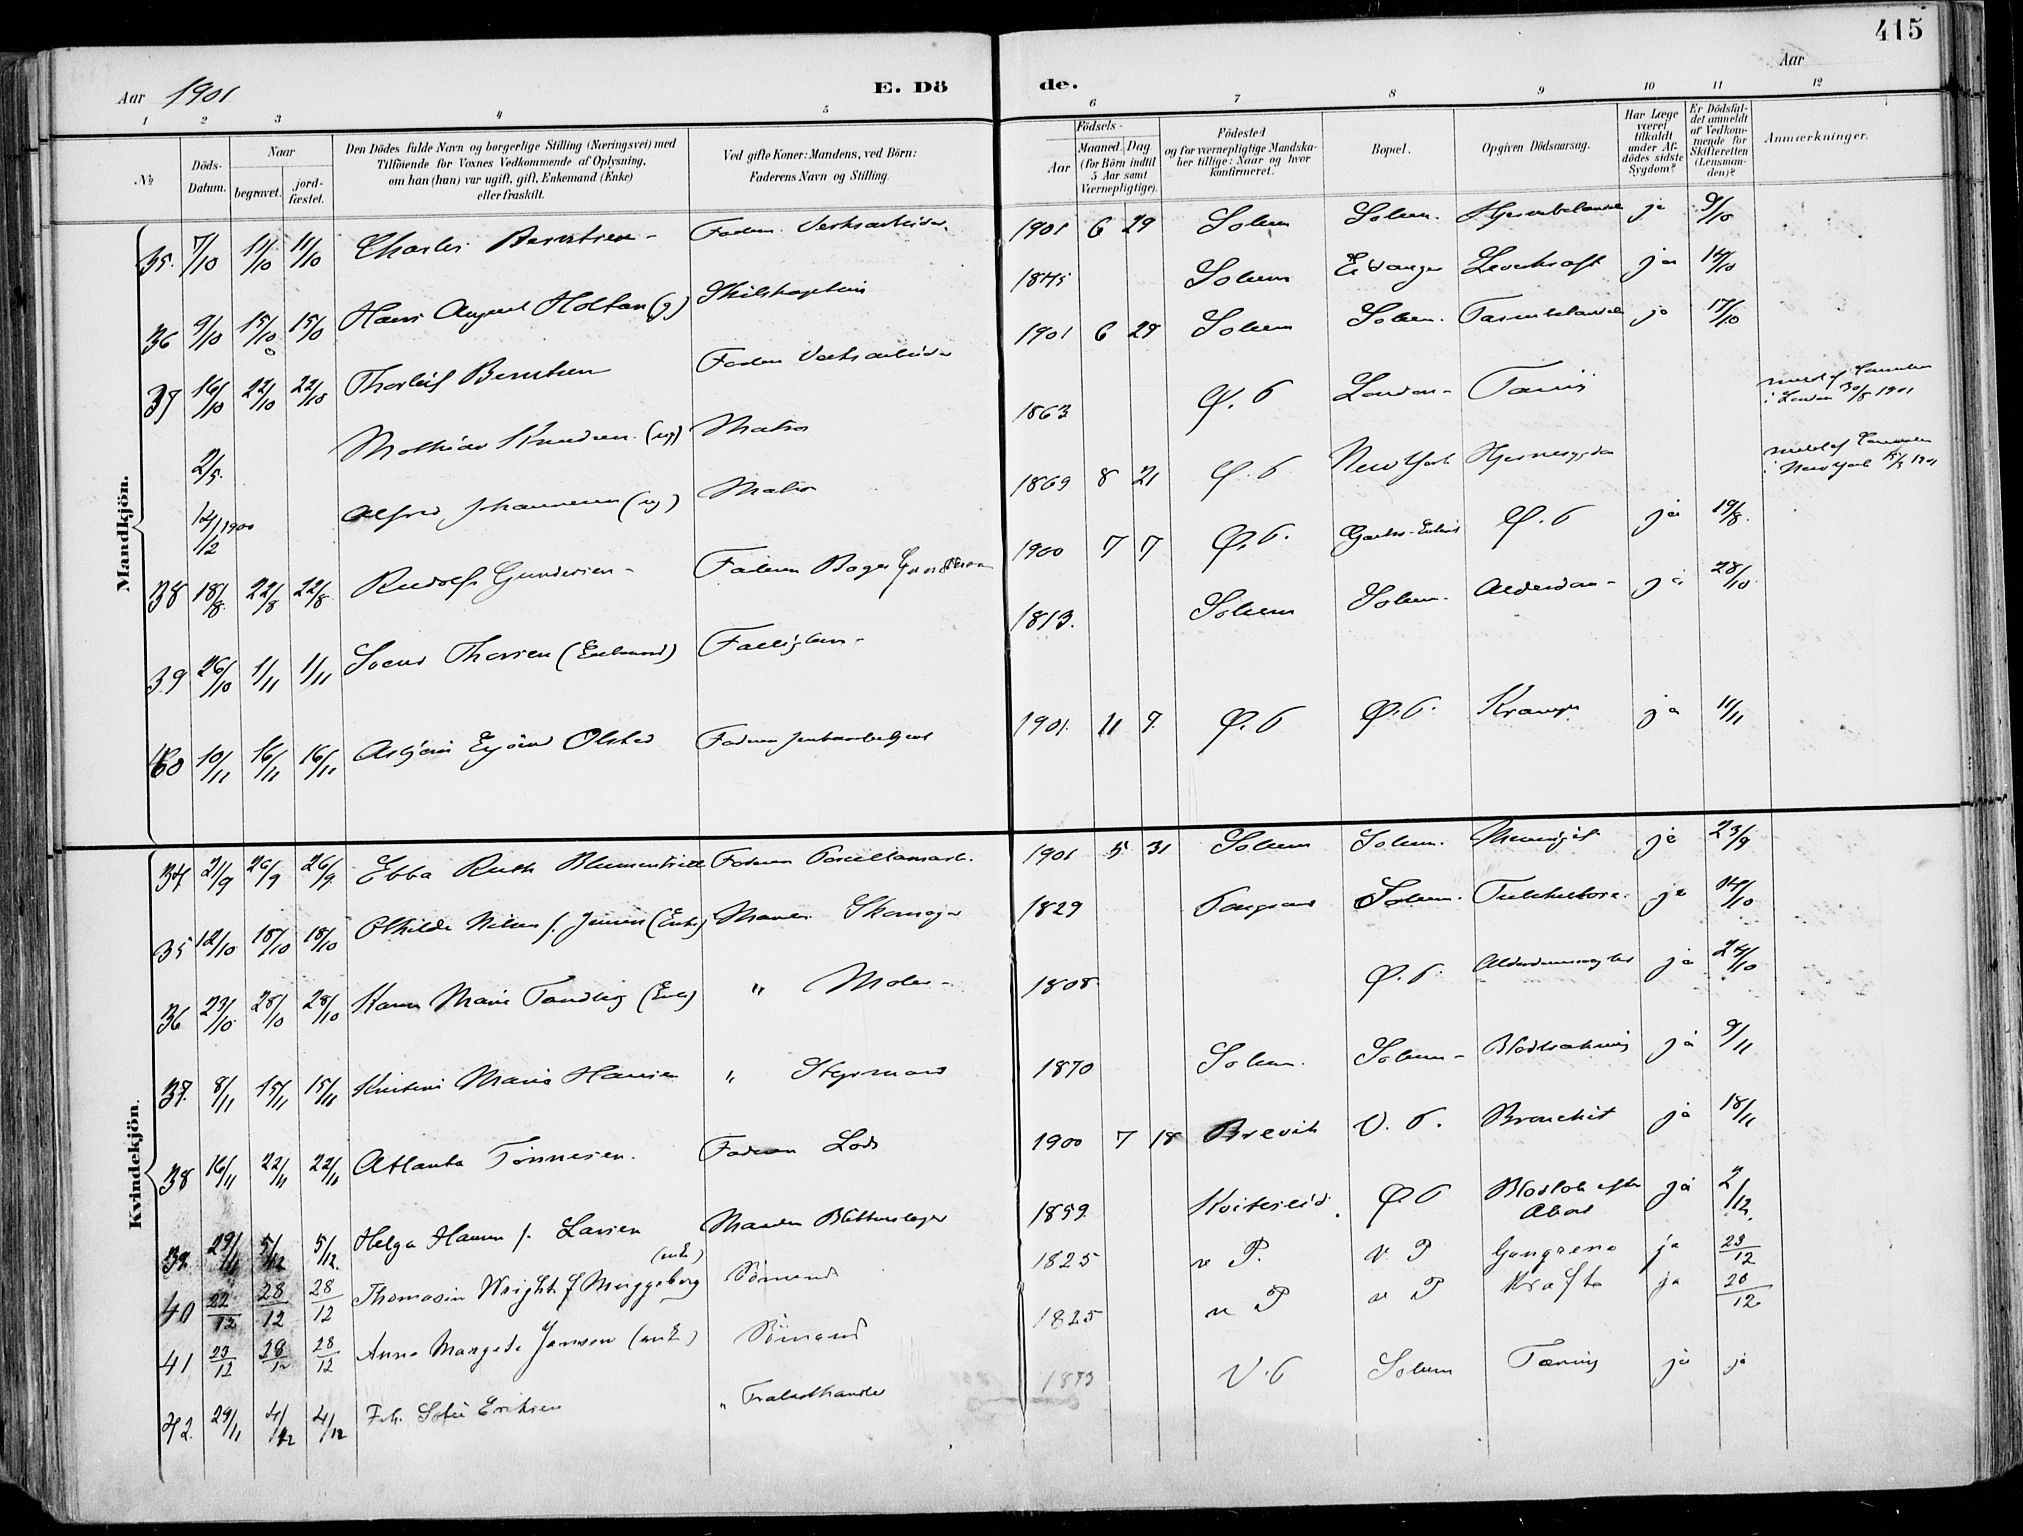 415
Aar 1901
E. Dö
de.
Aar
1 2 3 4 5 6 7 8 9 10 11 12
No
Döds-Datum.
Naar
begravet.
jord-fæstet.
Den Dödes fulde Navn og borgerlige Stilling (Næringsvei) med
Tilföiende for Voxnes Vedkommende af Oplysning,
om han (hun) var ugift, gift, Enkemand (Enke)
eller fraskilt.
Ved gifte Koner: Mandens, ved Börn:
Faderens Navn og Stilling.
Födsels-
Aar
Maaned. Dag
(for Börn indtil
5 Aar samt
Værnepligtige).
Födested
og for værnepligtige Mandska-
ber tillige: Naar og hvor
konfirmeret.
Bopæl.
Opgiven Dödsaarsag.
Har Læge
været
tilkaldt
under Af-
dödes sidste
Sygdom?
Er Dödsfal-
det anmeldt
af Vedkom-
mende for
Skifteretten
(Lensman-
den)?
Anmærkninger.
Mandkjön.
35. 7/10 11/10 11/10 Charles Berntsen Faderen Verksarbeider 1901 6 29 Solum Solum. ja 9/10
36 9/10 15/10 15/10 Hans August Holtan (g) Skibskaptein 1875 Solum Eidanger ja 14/10
37 16/10 22/10 22/10 Thorleif Berntsen Faderen Verksarbeider 1901 6 29 Solum Solum. ja 17/10
2/5. Mathias Knudsen (ug) Matros 1863 Ø. P London Tæring
i London 30/8 1901
12/12 1900 Alfred Johannesen (ug) Matros 1869 8 21 Ø. P New York
i New York 1901
38 18/8. 22/8 22/8 Rudolf Gundersen Faderen Bager Gundersen 1900 7 7 Ø. P. Ø. P ja 19/8.
39 26/10 1/11 1/11 Thorsen (Enkemand) Fattiglem 1813. Solum Solum. Alderdom ja 28/10
40 10/11 16/11 16/11 Olsted Faderen 1901. 11 9. Ø. P Ø. P. Krampe ja 11/11
Kvindekjön.
34. 21/9 26/9 26/9. Ebba Ruth Blumentritt Faderen Porcellænsarb. 1901 5 31 Solum Solum. ja 23/9
35 12/10 18/10 18/10 Othilde Nilsen f. Jensen (Enke) Manden Skomager 1829 Porsgrund Solum. Tuberkulose ja 14/10
36 23/10 28/10 28/10 Karen Marie (Enke) " Maler 1808 Ø. P. ja 24/10
37. 8/11 15/11 15/11 Kristine Marie Hansen " Styrmand 1870 Solum. Solum ja 9/11
38 16/11 22/11 22/11 Atlanta Tönnesen. Faderen Lods 1900 7 18 Brevik V. P. Bronchit ja 18/11
39. 29/11 5/12 5/12. Helga Hansen f. Larsen Manden Blikkenslager 1859. Kviteseid. Ø. P Blodtab efter
Abort ja 2/12.
40 22/12 28/12 28/12 Thomasin Wright f Muggeborg (enk) Sömand 1825 v P. v. P Gangrena ja 23/12
41 23/12 28/12 28/12 Anne Margrete Jensen (enk) Sömand 1825 v P v P Kræft ja 28/12
42. 29/11 4/12 4/12 Sofie Eriksen " Trælasthandler 1873 V. P Solum Tæring ja ja